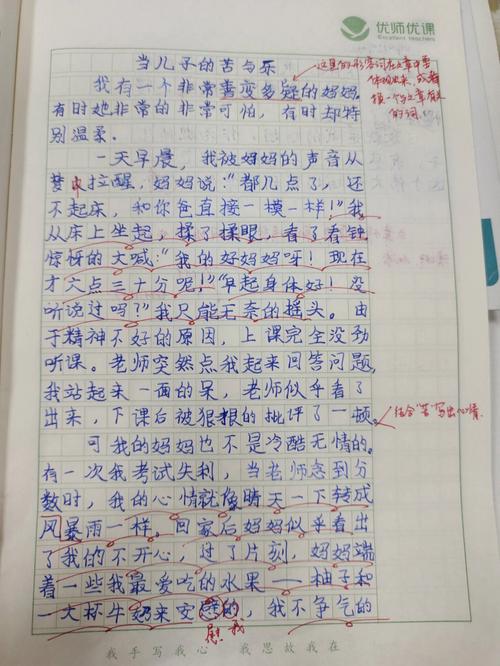 优师优课
Excellent teachers
当儿子的苦与乐
我有一个非常善变多疑的妈妈,
有时她非常的非常可怕,有时却特
别温柔。
一天早晨,我被妈妈的声音从
梦中拉醒,妈妈说:“都几点了,还
不起床,和你爸直接一模一样!”我
从床上坐起,揉了揉眼,看了看钟
惊讶的大喊:“我的好妈妈呀!现在
才六点三十分呢!”“早起身体好!没
听说过吗?”我只能无奈的摇头。由
于精神不好的原因,上课完全没劲
听课。老师突然点我起来回答问题,
我站起来一面的呆,老师似乎看了
出来,下课后被狠狠的批评了一顿。
可我的妈妈也不是冷酷无情的。
有一次我考试失利,当老师念到分
数时,我的心情就像晴天一下转成
风暴雨一样。回家后妈妈似乎看出
了我的不开心;过了片刻,妈妈端
着一些我最爱吃的水果——柚子和
一大杯牛奶来安慰的,我不争气的
慰 我
我手写我心 我思故我在
这里的形容词在文章中要
体现出来,或者
换一个与文章有关
的词
结合“苦”写出心情